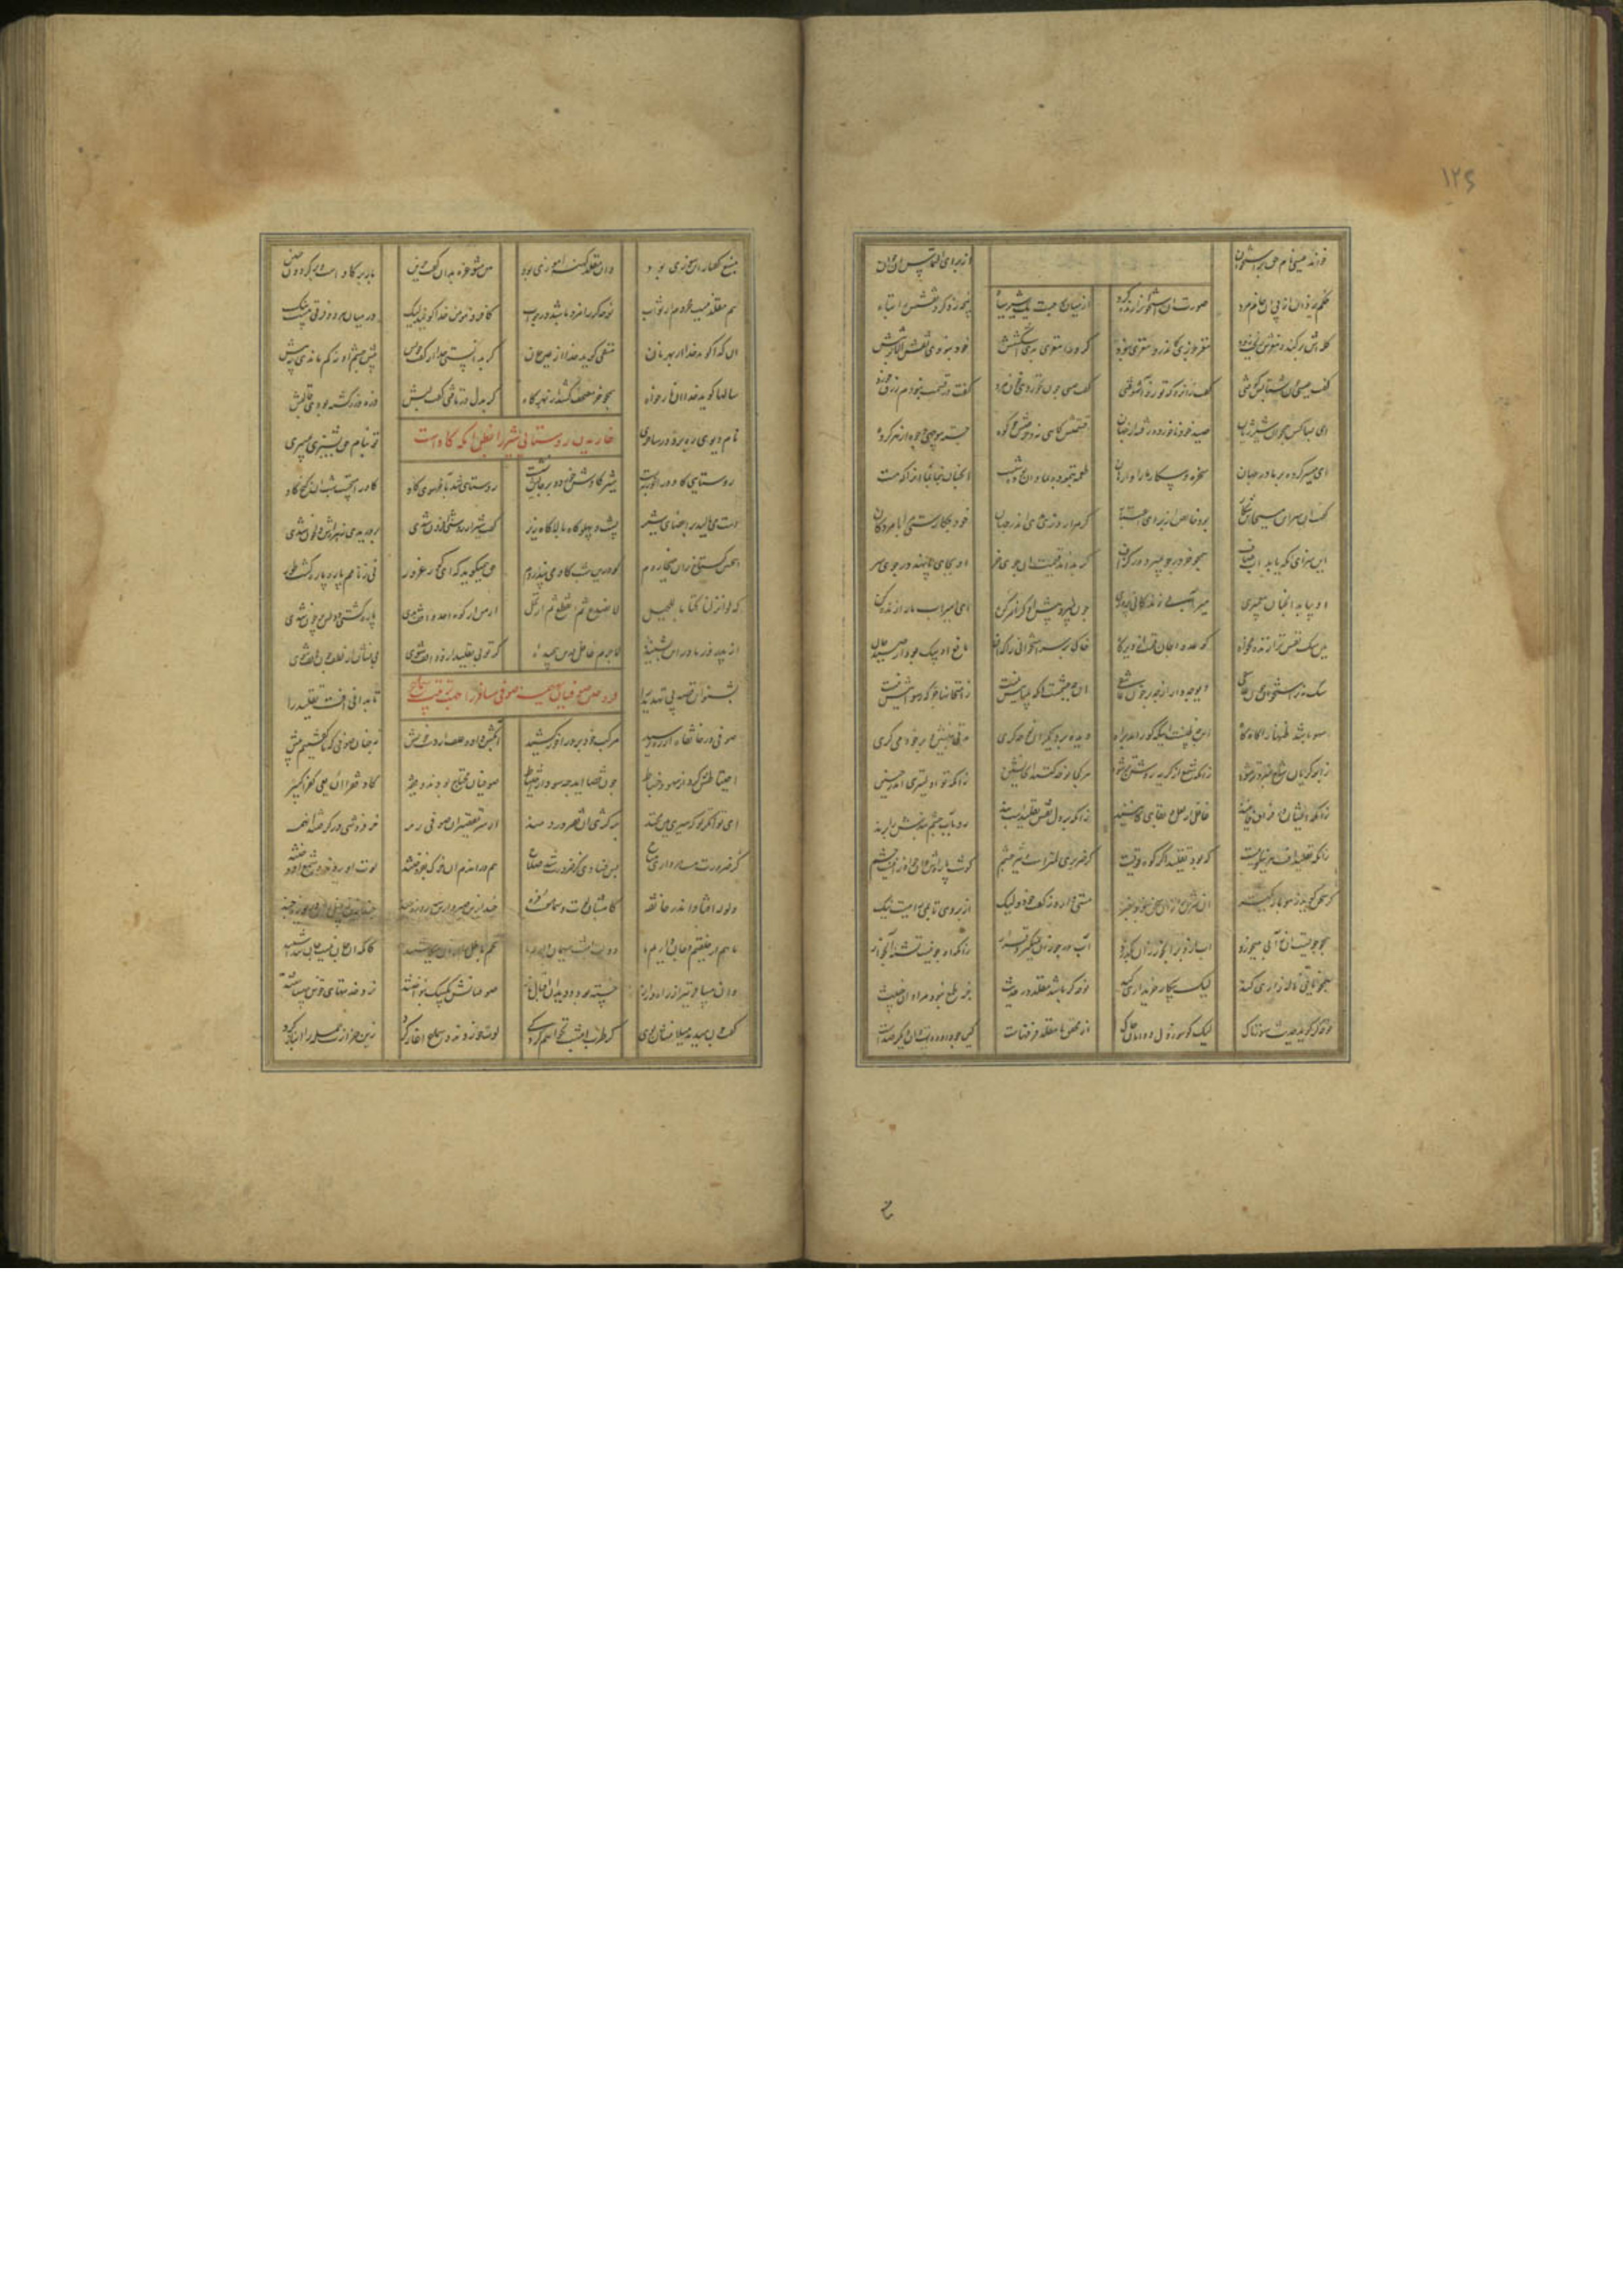 خواند عیسی نام حق بر استخوان از برای التماس آن جوان
حکم یزدان از پی آن خام مرد صورت آن استخوان را زنده کرد از میان بر جست یک شیر سیاه پنجه زد کرد نقشش را تباه
کله اش بر کند مغزش ریخت زود مغز جوزی کاندرو مغزی نبود گر ورا مغزی بدی اشکستنش خود نبودی نقص الا بر تنش
گفت عیسی چون شتابش کوفتی گفت زانرو که تو زو آشوفتی گفت عیسی چون نخوردی خون مرد گفت در قسمت نبودم رزق خورد
ای بسا کس همچو آن شیر ژیان صید خود ناخورده رفته از جهان قسمتش کاهی نه و حرصش چو کوه وجوه از هر گروه
ای میسر کرده بر ما در جهان سخره و بیکار ما را وارهان طعمه بنموده بما وان بوده شست آنچنان بنما بما آنرا که هست
گفت آن شیر ای مسیحا این شکار بود خالص از برای اعتبار گر مرا روزی بدی اندر جهان خود چه کارستی مرا با مردگان
این سزای آنکه یابد آب صاف همچو خر در جو بمیزد از گزاف گر بداند قیمت آن جوی خر او بجای پا نهد در جوی سر
او بیابد آنچنان پیغمبری میر آبی زندگانی پروری چون نمیرد پیش او کز امر کن ای امیر آب ما را زنده کن
هین سگ نفس ترا زنده مخواه کو عدو جان تست از دیرگاه خاک بر سر استخوانی را که آن مانع این سگ بود از صید جان
سگ نه بر استخوان چون عاشقی دیوچه وار از چه بر خون عاشقی آن چه چشمست آنکه بیناییش نیست ز امتحانها جز که رسواییش نیست
سهو باشد ظنها را گاه گاه این چه ظنست اینکه کور آمد ز راه دیده بر دیگران نوحه گری مدتی بنشین و بر خود می گری
ز ابر گریان شاخ سبز و تر شود زانکه شمع از گریه روشن تر شود هر کجا نوحه کنند آنجا نشین زانکه تو اولیتری اندر حنین
زانکه ایشان در فراق فانیند غافل از لعل بقای کانیند زانکه بر دل نقش تقلیدست بند رو بآب چشم بندش را برند
زانکه تقلید آفت هر نیکویست که بود تقلید اگر کوه قویست گر ضریری لمترست و تیز خشم گوشت پاره ش دان چو او را نیست چشم
گر سخن گوید ز مو باریکتر آن سرش را زان سخن نبود خبر مستیی دارد ز گفت خود و لیک از بر وی تا بمی راهیست نیک
همچو جویست او نه آبی میخورد آب ازو بر آبخوران بگذرد آب در جو زان نمیگیرد قرار زانکه آن جو نیست تشنه و آبخوار
همچو نایی ناله زاری کند لیک بیکار خریداری کند نوحه گر باشد مقلد در حدیث جز طمع نبود مراد آن خبیث
نوحه گر گوید حدیث سوزناک لیک کو سوز دل و دامان چاک از محقق تا مقلد فرقهاست کین چو داودست و آن دیگر صداست
منبع گفتار این سوزی بود وان مقلد کهنه آموزی بود هین مشو غره بدان گفت حزین بار بر گاو است و بر گردون حنین
هم مقلد نیست محروم از ثواب نوحه گر را مزد باشد در حساب کافر و مومن خدا گویند لیک در میان هر دو فرقی هست نیک
آن گدا گوید خدا از بهر نان متقی گوید خدا از عین جان گر بدانستی گدا از گفت خویش پیش چشم او نه کم ماندی نه پیش
سالها گوید خدا آن نان خواه همچو خر مصحف کشد از بهر کاه گر بدل در تافتی گفت لبش ذره ذره گشته بودی قالبش
نام دیوی ره برد در ساحری تو بنام حق پشیزی میبری
خاریدن روستائی شیر را بظن آنکه گاو است
روستایی گاو در آخر ببست شیر گاوش خورد و بر جایش نشست روستایی شد در آخر سوی گاو گاو را میجست شب آن کنج کاو
دست می مالید بر اعضای شیر پشت و پهلو گاه بالا گاه زیر گفت شیر ار روشنی افزون شدی زهره اش بدریدی و دلخون شدی
اینچنین گستاخ زان میخاردم کو درین شب گاو می پنداردم حق همیگوید که ای مغرور کور نی ز نامم پاره پاره گشت طور
که لو انزلنا کتابا للجبل لانصدع ثم انقطع ثم ارتحل از من ار کوه احد واقف بدی پاره گشتی و دلش پر خون شدی
از پدر وز مادر این بشنیده لاجرم غافل درین پیچیده گر تو بی تقلید ازو واقف شوی بی نشان از لطف چون هاتف شوی
بشنو این قصه پی تهدید را تا بدانی آفت تقلید را
فروختن صوفیان بهیمه صوفی مسافر را جهت سماع
صوفی در خانقاه از ره رسید مرکب خود برد و در آخر کشید
احتیاطش کرد از سهو و خباط چون قضا آید چه سود از احتیاط صوفیان محتاج بودند و فقیر کاد فقرا ان یعی کفرا کبیر
ای توانگر تو که سیری هین مخند بر کژی آن فقیر دردمند از سر تقصیر آن صوفی رمه خر فروشی در گرفتند آن همه
کز ضرورت هست مرداری مباح بس فسادی کز ضرورت شد صلاح هم در آن دم آن خرک بفروختند لوت آوردند و شمع افروختند
ولوله افتاد اندر خانقه کامشبان لوت و سماعست و شره
ما هم از خلقیم و جان داریم ما دولت امشب میهمان داریم ما تخم باطل را از آن میکاشتند کانکه آن جان نیست جان پنداشتند
وان مسافر نیز از راه دراز خسته بود و دید آن اقبال و ناز صوفیانش یک بیک بنواختند نرد خدمتهای خوش میباختند
گفت چون میدید میلانشان بوی گر طرب امشب نخواهم کرد کی لوت خوردند و سماع آغاز کرد